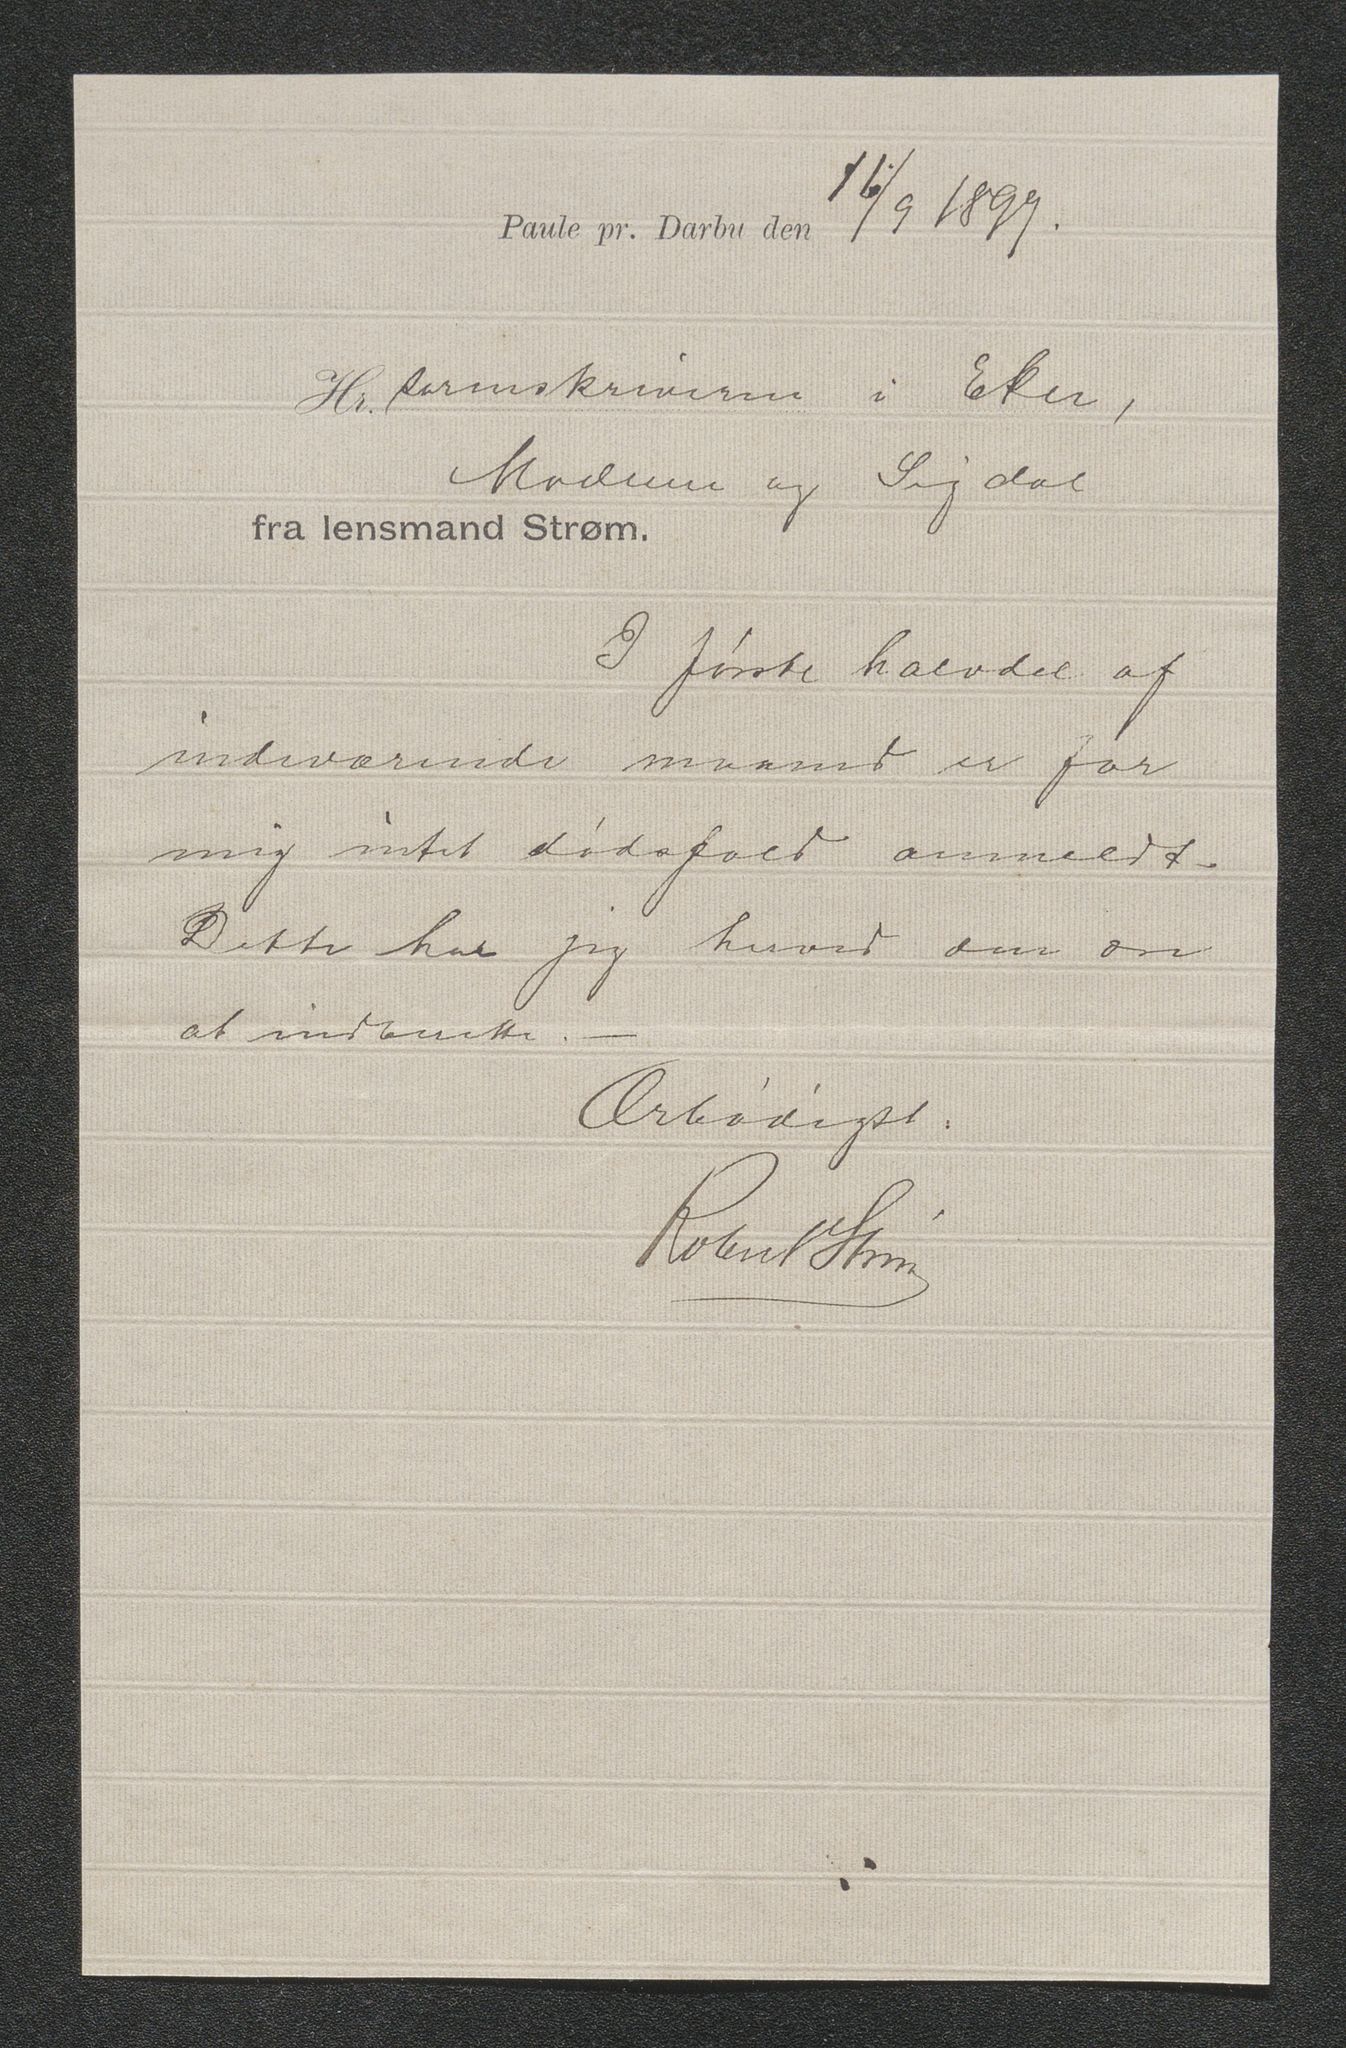 Paule pr. Darbu den 16/9 1897.
Hr. sorenskriveren i Eker,
Modum og Sigdal
fra lensmand Strøm.
I første halvdel af
indeværende maaned er for
mig intet dødsfald anmeldt.
Dette har jeg herved den ære
at indberette. —
Ærbødigst:
Robert Strøm